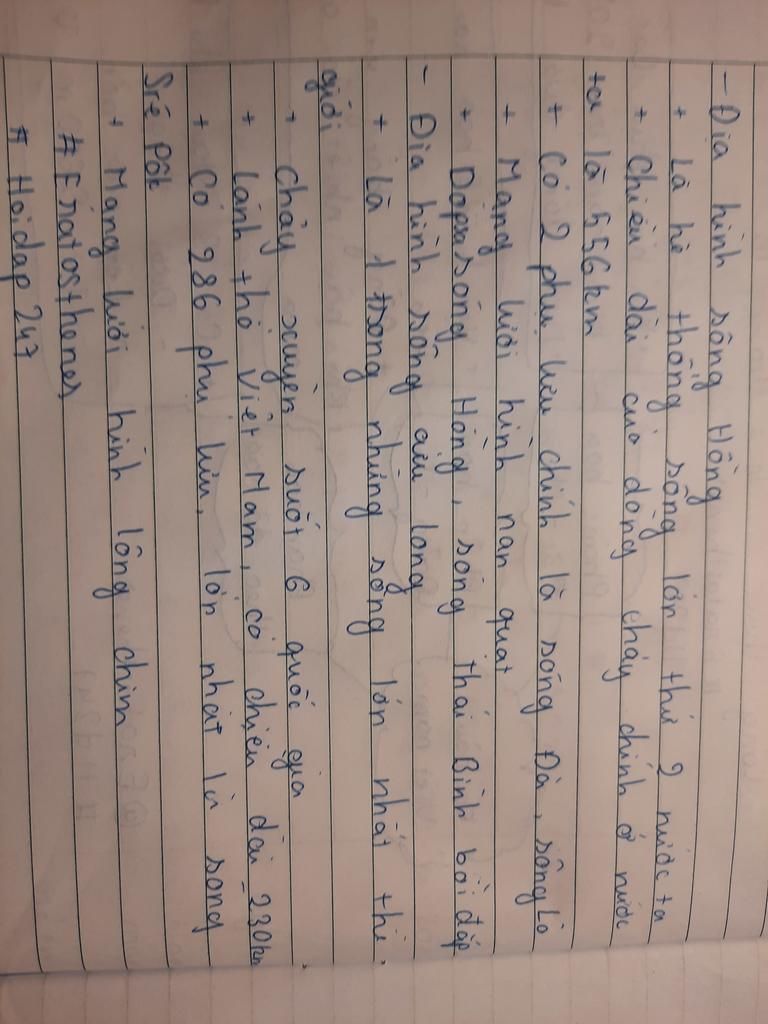 - Địa hình sông Hồng
+ Là hệ thống sông lớn thứ 2 nước ta
+ Chiều dài của dòng chảy chính ở nước
ta là 556km
+ Có 2 phụ lưu chính là sông Đà, sông Lô
+ Mạng lưới hình nan quạt
+ Do phù sa sông Hồng, sông thái Bình bồi đắp
- Địa hình sông cửu long
+ Là 1 trong những sông lớn nhất thế
giới
+ chảy xuyên suốt 6 quốc gia
+ Lãnh thổ Việt Nam, có chiều dài 230km
+ Có 286 phụ lưu, lớn nhất là sông
Srê Pôk
+ Mạng lưới hình lông chim
# Eratosthenes
# Hoidap 247